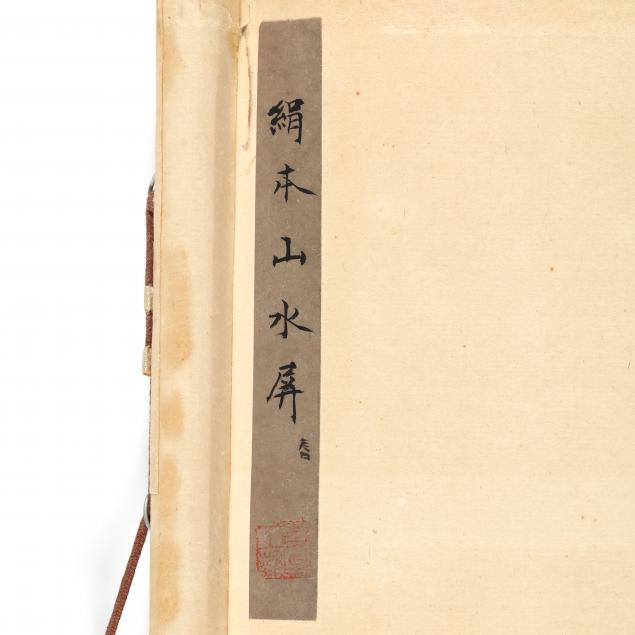 絹本山水屏